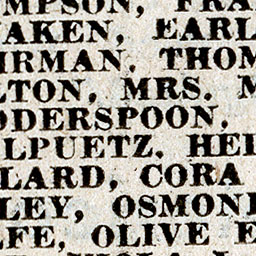 MPSON, FRA
AKEN, EARL
IRMAN, THOM
LTON, MRS. M
DDERSPOON,
LPUETZ, HEI
LARD, CORA
LEY, OSMON
FE, OLIVE E